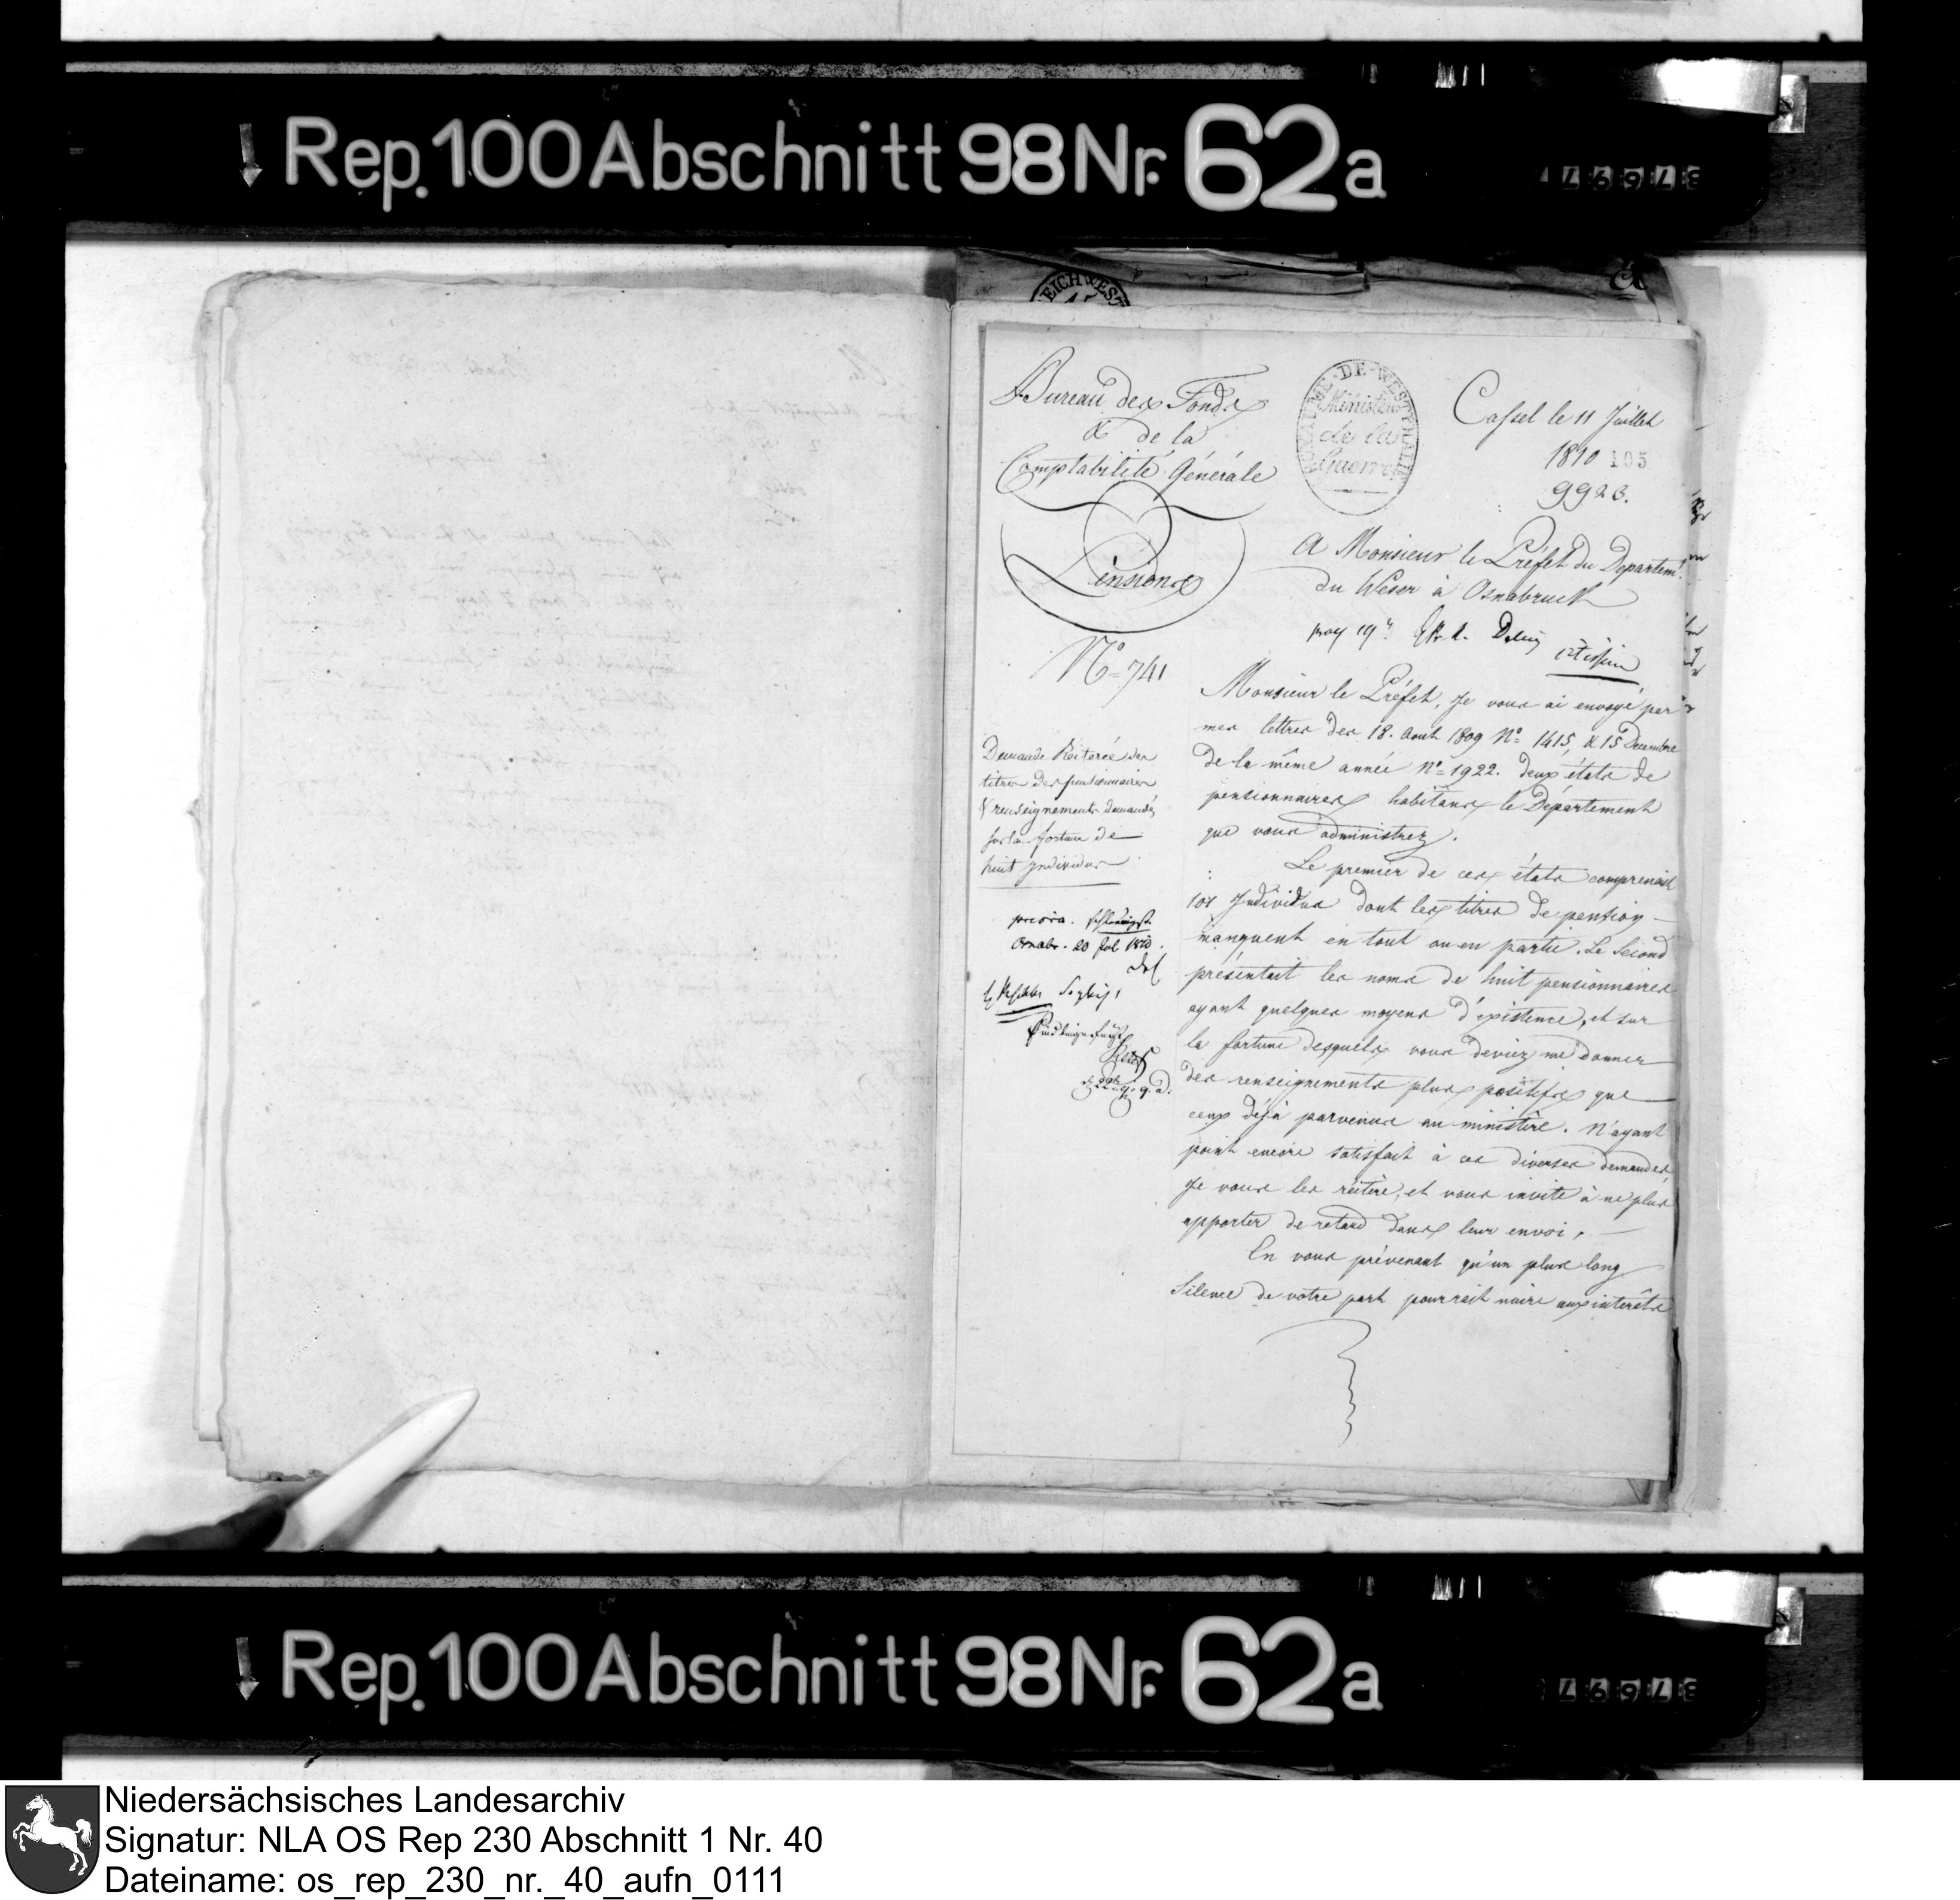 Rep. 100 Abschnitt 98 Nr. 62a
REICH WEST
Bureau des Fonds
& de la
Comptabilité Générale
Pensions
N.º 741
ROYAUME DE WESTPHALIE
Ministère
de la
Guerre
Cassel le 11 Juillet
1810 105
9923.
A Monsieur le Préfet du Departemt.
du Weser à Osnabruck
Monsieur le Préfet, Je vous ai envoyé par
mes lettres des 18. Aout 1809 Nº 1415, & 15 Decembre
de la même année Nº 1922. deux états de
pensionnaires habitans le Département
que vous administrez.
Le premier de ces états comprenait
101 Individus dont les titres de pension
manquent en tout ou en partie. Le Second
présentait les noms de huit pensionnaires
ayant quelques moyens d'existence, et sur
la fortune desquels vous deviez me donner
des renseignements plus positifs que
ceux déjà parvenus au ministère. N'ayant
point encore satisfait à ces diverses demandes
Je vous les réitère, et vous invite à ne plus
apporter de retard dans leur envoi.
En vous prévenant qu'un plus long
Silence de votre part pourrait nuire aux intérêts
Demande Réiterée des
titres des pensionnaires
& renseignements demandés
sur la fortune de
huit Individus
priora. schleunigst
Osnabr. 20 Jul 1810.
Rep. 100 Abschnitt 98 Nr. 62a
Niedersächsisches Landesarchiv
Signatur: NLA OS Rep 230 Abschnitt 1 Nr. 40
Dateiname: os_rep_230_nr._40_aufn_0111